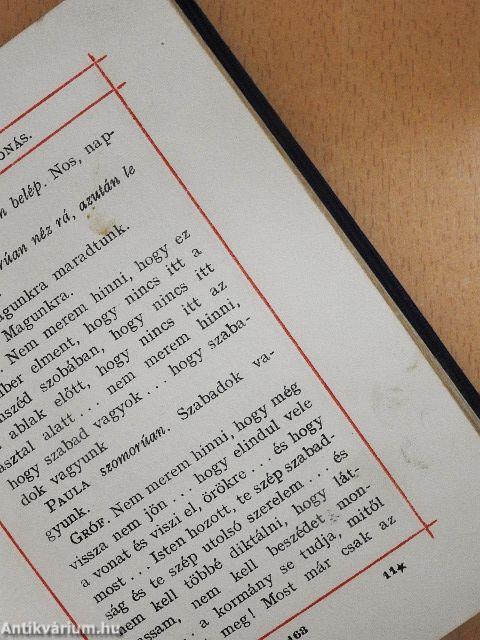 ONÁS.
n belép. Nos, nap-
rúan néz rá, azután le
agunkra maradtunk.
Magunkra.
. Nem merem hinni, hogy ez
ber elment, hogy nincs itt a
szobában, hogy nincs itt
ablak előtt, hogy nincs itt az
asztal alatt ... nem merem hinni,
hogy szabad vagyok ... hogy szaba-
dok vagyunk ...
PAULA szomorúan. Szabadok va-
gyunk.
GRÓF. Nem merem hinni, hogy még
vissza nem jön ... hogy elindul vele
a vonat és viszi el, örökre ... és hogy
most ... Isten hozott, te szép szabad-
ság és te szép utolsó szerelem ... és
nem kell többé diktálni, hogy lát-
assam, nem kell beszédet mon-
... a kormány se tudja, mitől
meg! Most már csak az
163
11*
Antikvárium.hu